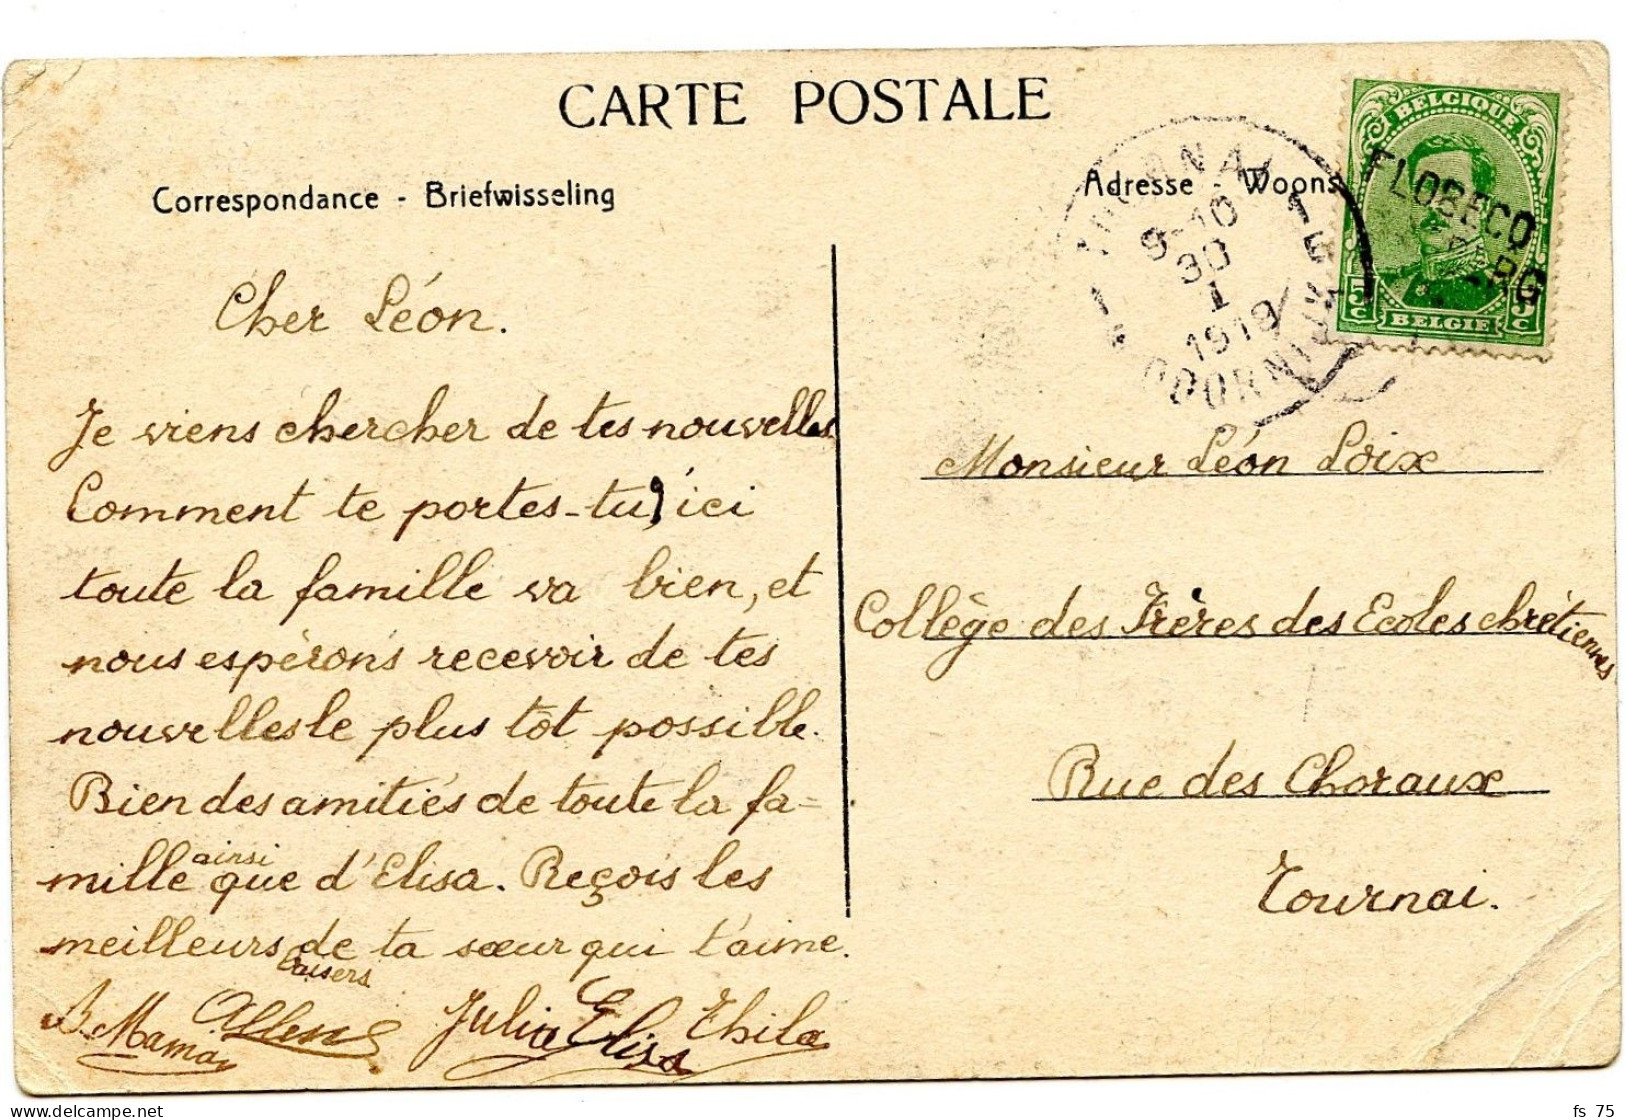 CARTE POSTALE
Correspondance - Briefwisseling
Adresse - Woons
BELGIQUE
FLOBECQ
5 c
5 c
BELGIE
9-10
30
I
1919
DOORNIJK
Cher Léon.
Je viens chercher de tes nouvelles
Comment te portes-tu, ici
toute la famille va bien, et
nous espérons recevoir de tes
nouvelles le plus tôt possible.
Bien des amitiés de toute la fa=
mille ainsi que d'Elisa. Reçois les
meilleurs baisers de ta sœur qui t'aime.
Maman Julia Elisa
Monsieur Léon Loix
Collège des Frères des Ecoles chrétiennes
Rue des Choraux
Tournai.
fs 75